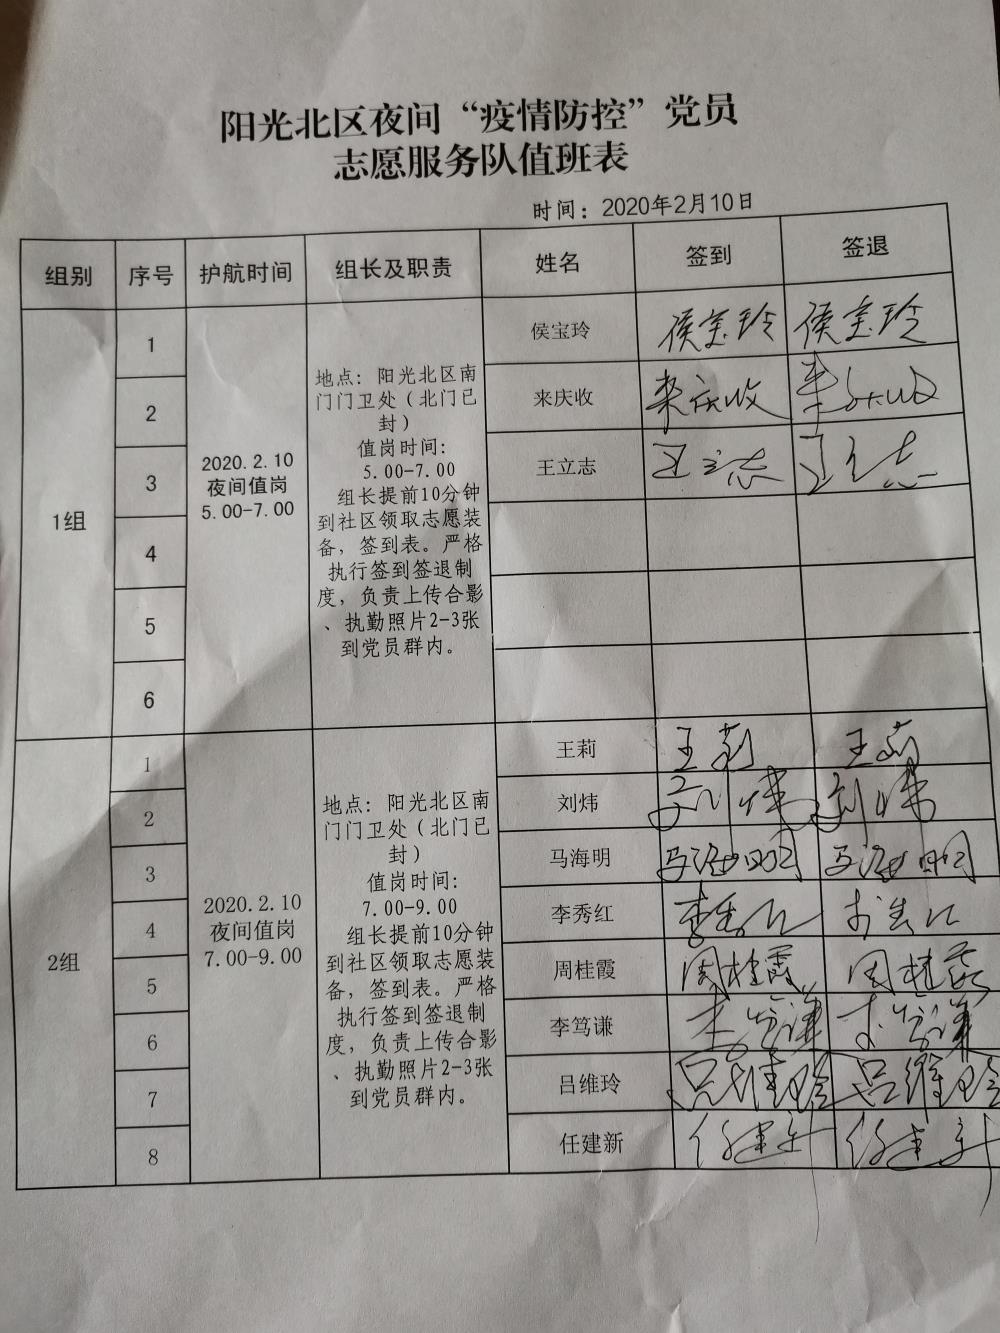 阳光北区夜间“疫情防控”党员
志愿服务队值班表
时间：2020年2月10日
组别 序号 护航时间 组长及职责 姓名 签到 签退
1组
2020.2.10
夜间值岗
5.00-7.00
地点：阳光北区南
门门卫处（北门已
封）
值岗时间：
5.00-7.00
组长提前10分钟
到社区领取志愿装
备，签到表。严格
执行签到签退制
度，负责上传合影
、执勤照片2-3张
到党员群内。
1 侯宝玲 侯宝玲 侯宝玲
2 来庆收 来庆收 来庆收
3 王立志 王立志 王立志
4
5
6
2组
2020.2.10
夜间值岗
7.00-9.00
地点：阳光北区南
门门卫处（北门已
封）
值岗时间：
7.00-9.00
组长提前10分钟
到社区领取志愿装
备，签到表。严格
执行签到签退制
度，负责上传合影
、执勤照片2-3张
到党员群内。
1 王莉 王莉 王莉
2 刘炜 刘炜 刘炜
3 马海明 马海明 马海明
4 李秀红 李秀红 李秀红
5 周桂霞 周桂霞 周桂霞
6 李笃谦 李笃谦 李笃谦
7 吕维玲 吕维玲 吕维玲
8 任建新 任建新 任建新